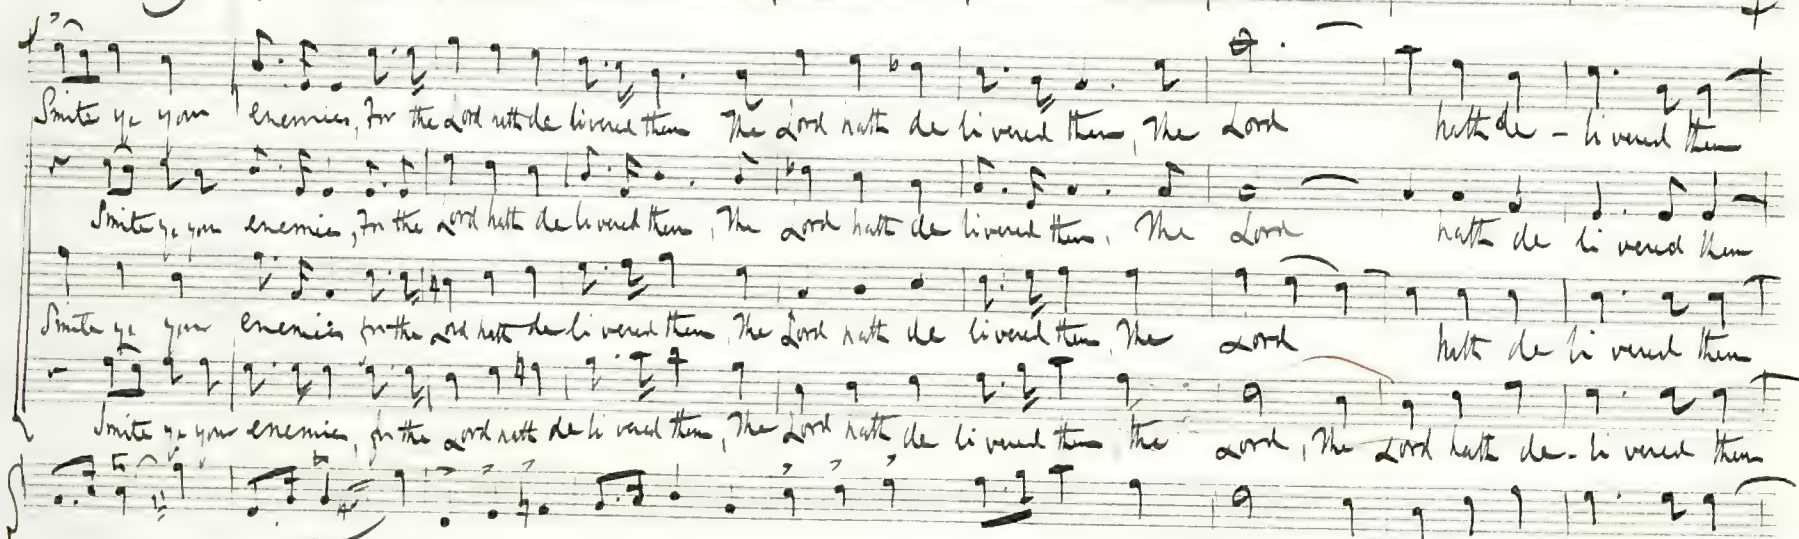 Smite ye your enemies, For the Lord hath de livered them The Lord hath de li vered them, The Lord hath de - li vered them
Smite ye your enemies, For the Lord hath de livered them, The Lord hath de livered them, The Lord hath de li vered them
Smite ye your enemies for the Lord hath de li vered them, The Lord hath de livered them, The Lord hath de li vered them
Smite ye your enemies, for the Lord hath de li vered them, The Lord hath de li vered them the Lord, The Lord hath de - li vered them